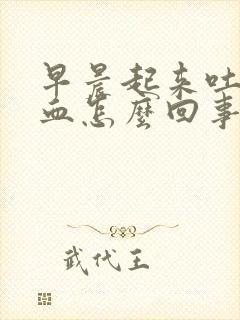 早晨起来吐
血怎麼回事
武代王